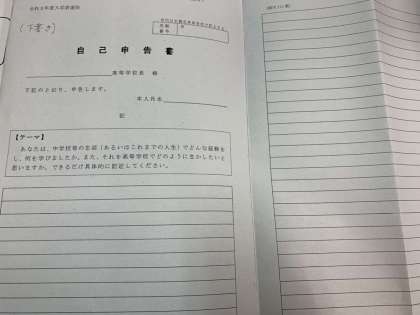 (下書き)
自己申告書
高等学校長 様
下記のとおり、申告します。
本人氏名
記
【テーマ】
あなたは、中学校等の生活(あるいはこれまでの人生)でどんな経験を
し、何を学びましたか。また、それを高等学校でどのように生かしたいと
思いますか。できるだけ具体的に記述してください。